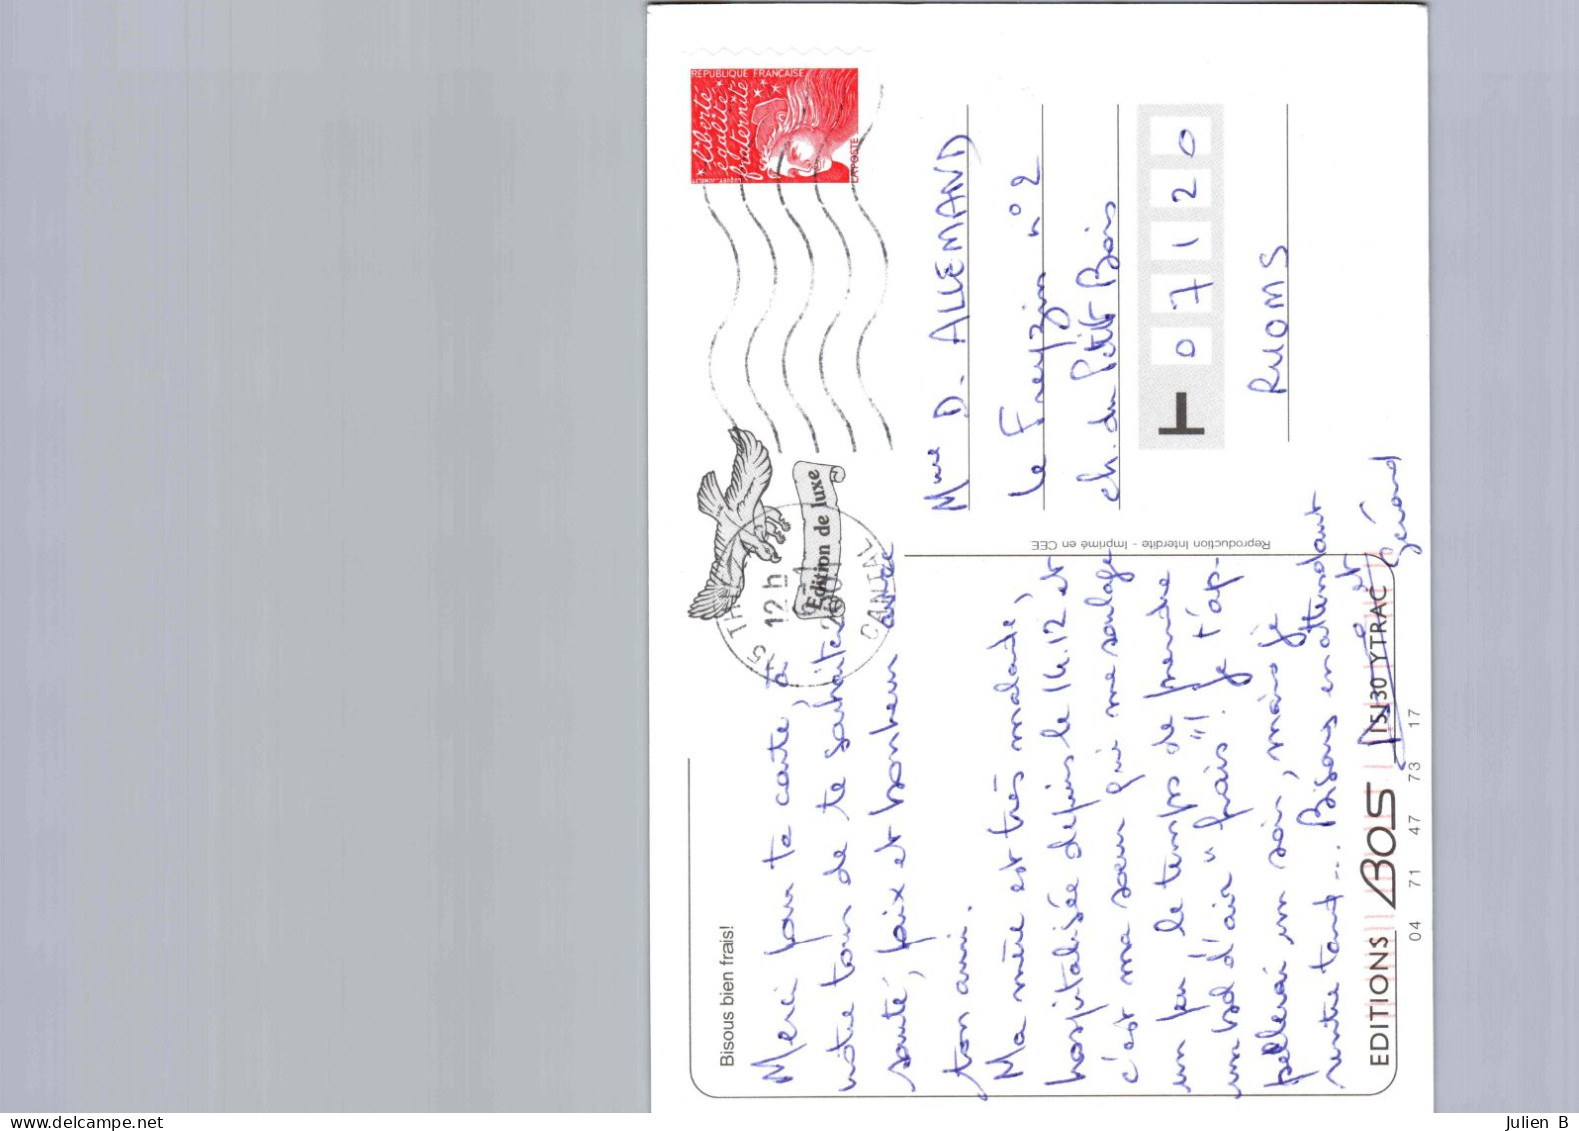 Bisous bien frais!
Merci pour ta carte, à
notre tour de te souhaiter
santé, paix et bonheur avec
ton ami.
Ma mère est très malade,
hospitalisée depuis le 14.12 et
c'est ma sœur qui me soulage
un peu le temps de prendre
un bol d'air "frais"! Je t'ap-
pellerai un soir, mais je
rentre tard... Bisous en attendant
et
Gérard
EDITIONS BOS 15130 YTRAC
04 71 47 73 17
Reproduction Interdite - Imprimé en CEE
Edition de luxe
15 TH
12 h
CANTAL
RÉPUBLIQUE FRANÇAISE
Liberté
égalité
fraternité
LA POSTE
Mme D. ALLEMAND
Le Freyzin n° 2
ch. du Petit Bois
07120
RUOMS
Julien B